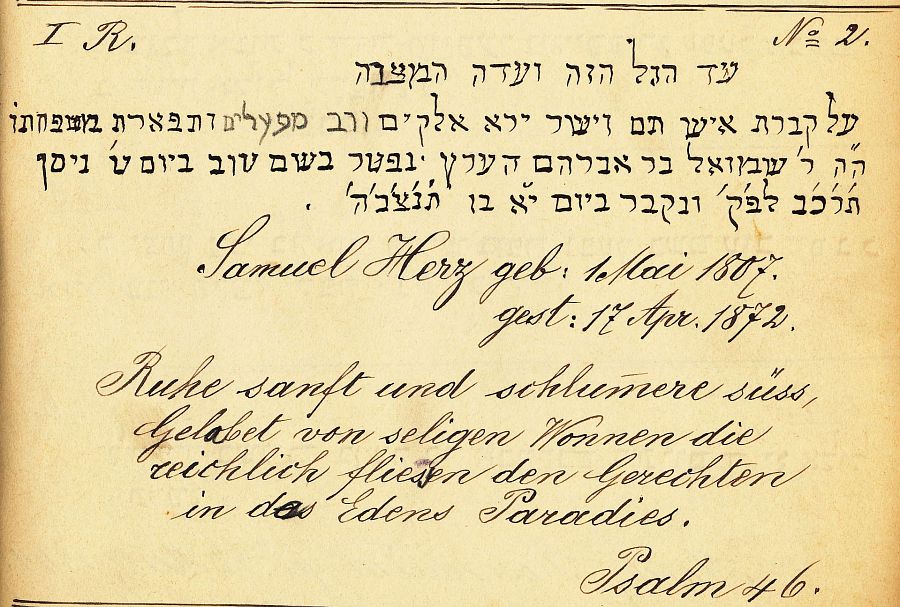 I R.
No 2.
עד הגל הזה ועדה המצבה
על קברת איש תם וישר ירא אלקים ורב מפעלים ותפארת משפחתו
ה"ה ר' שמואל בר אברהם הערץ נפטר בשם טוב ביום ט' ניסן
ת'ר'כ'ב' לפ'ק' ונקבר ביום י"א בו ת'נ'צ'ב'ה'.
Samuel Herz geb: 1 Mai 1807.
gest: 17 Apr. 1872.
Ruhe sanft und schlum̄ere süss,
Gelabet von seligen Wonnen die
reichlich fliesen den Gerechten
in des Edens Paradies.
Psalm 46.